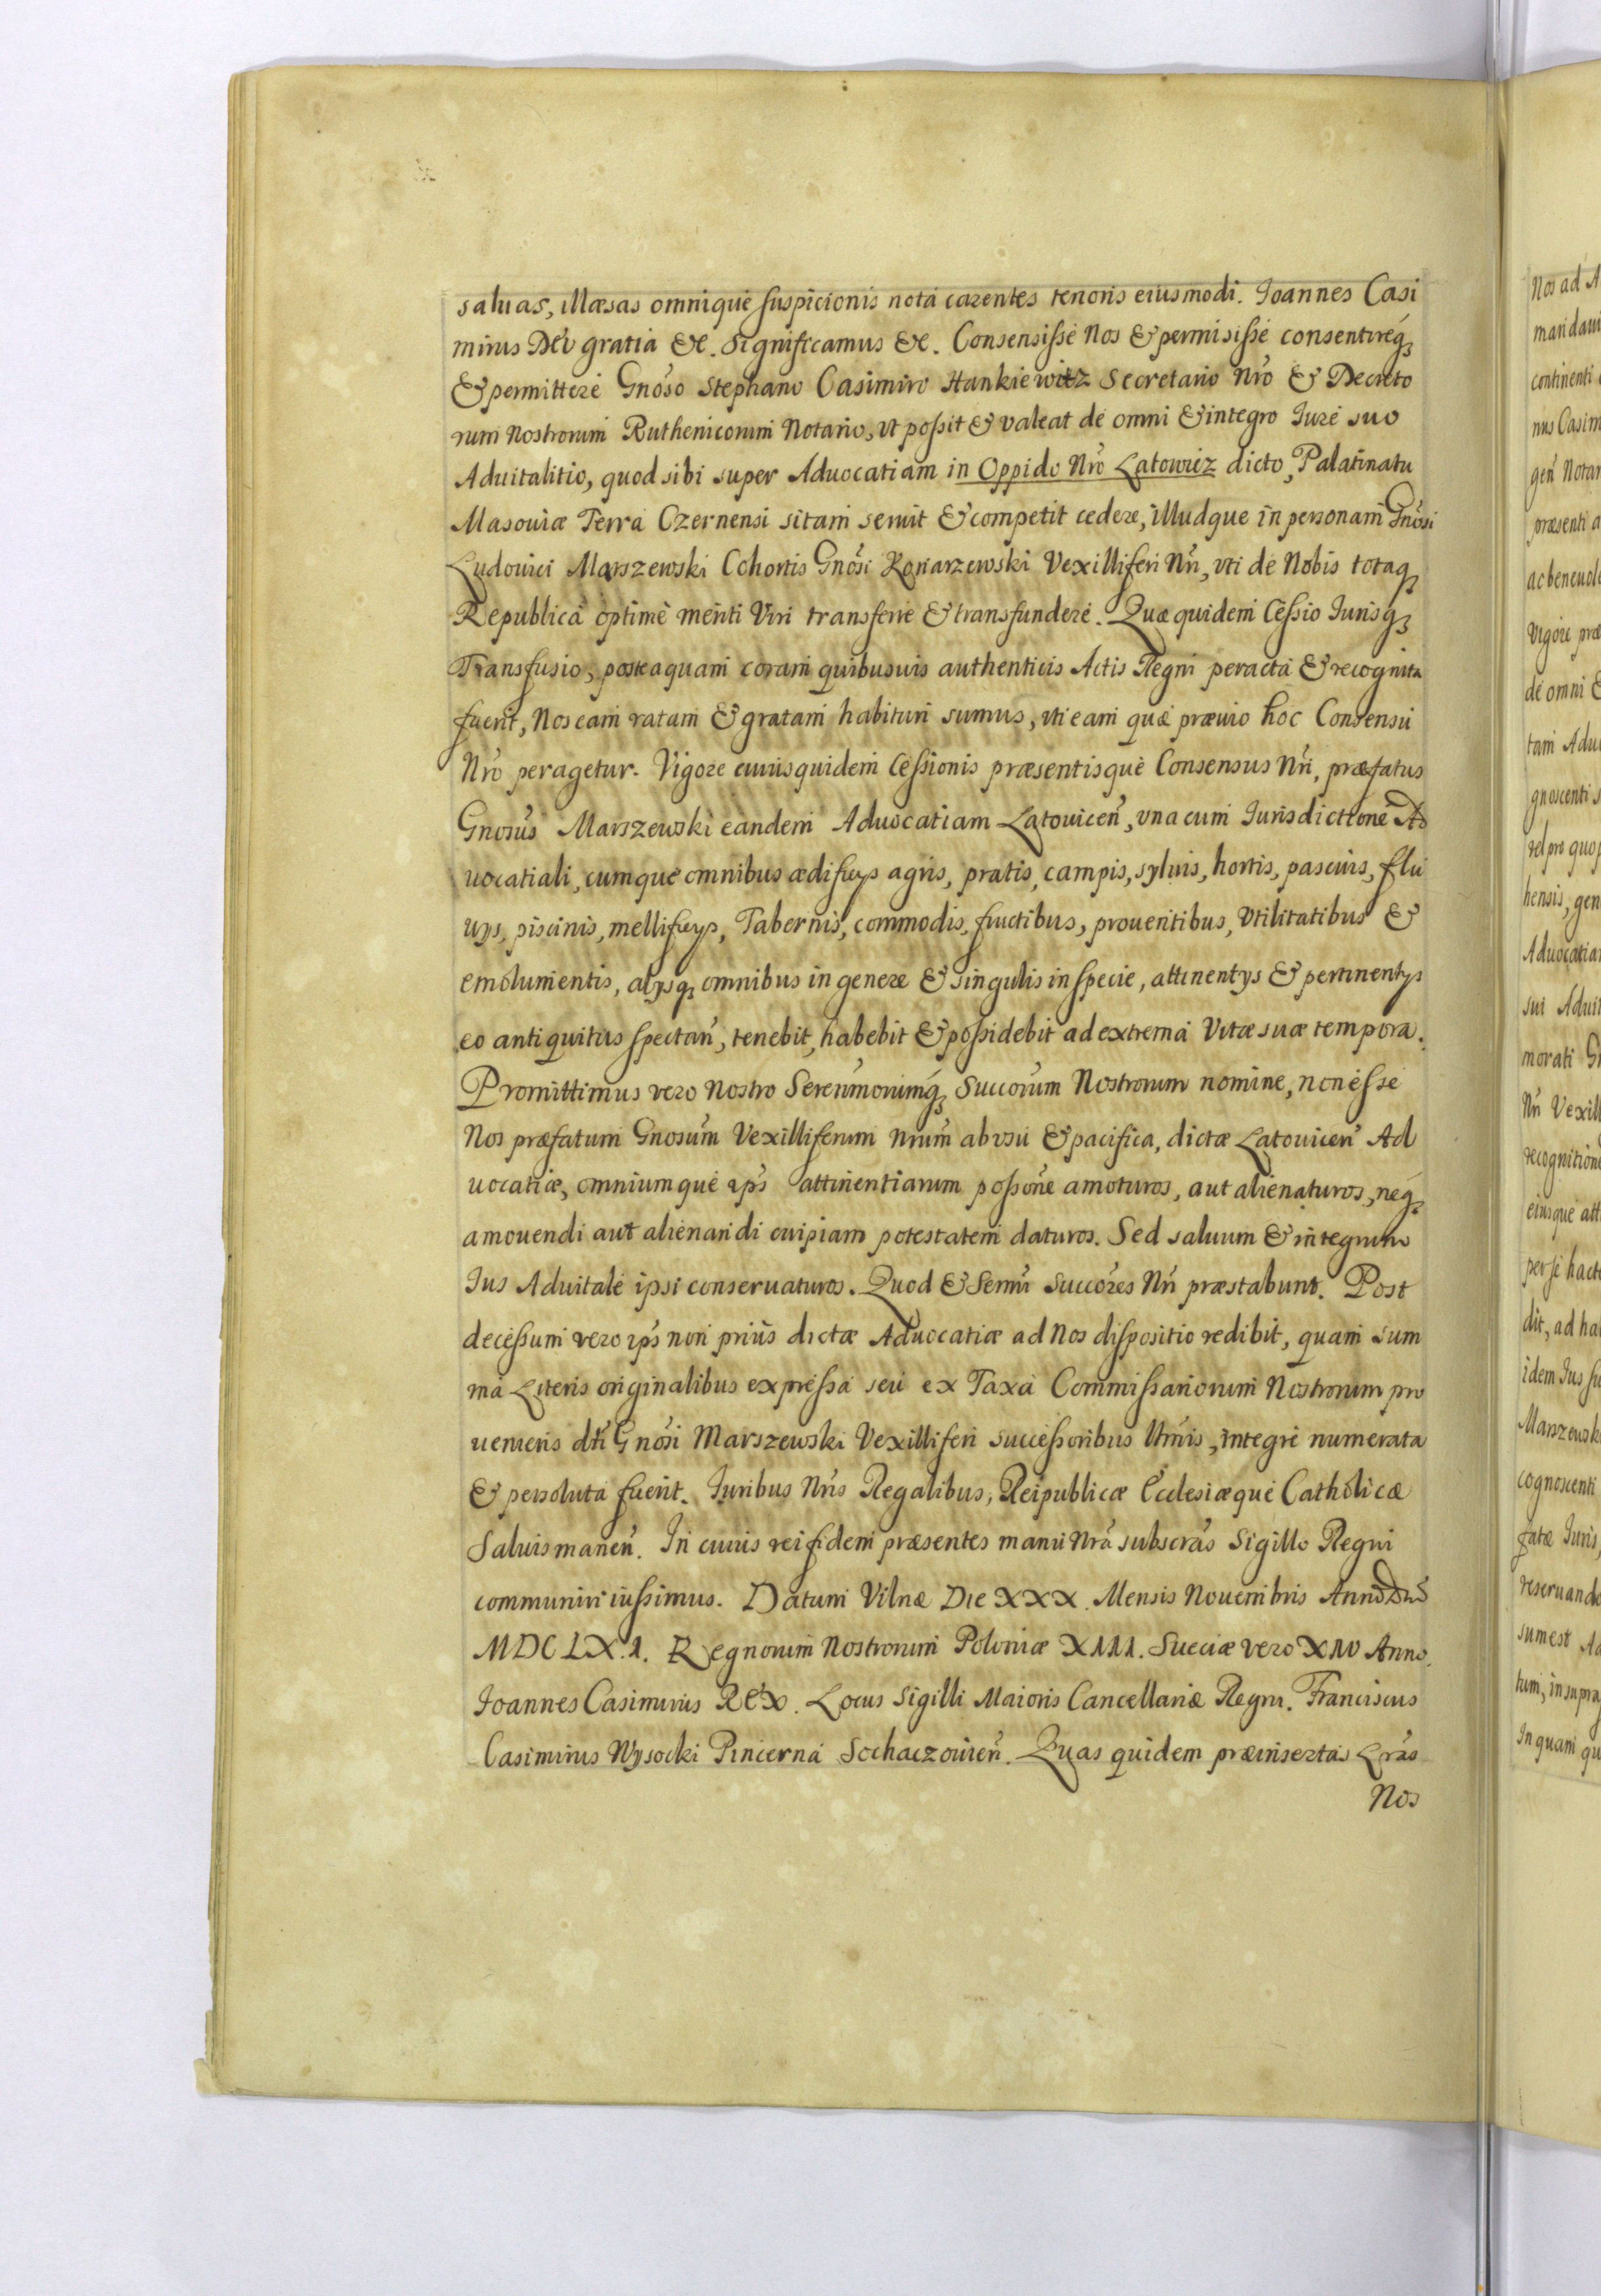 saluas, illæsas omniquè suspicionis notâ carentes tenoris eiusmodi. Ioannes Casi
mirus Dei gratia &c. Significamus &c. Consensissè Nos & permisissè consentireq3
& permitterè Gnoso Stephano Casimiro Hankiewicz Secretario Nro & Decreto
rum Nostrorum Ruthenicorum Notario, vt possit & valeat dè omni & integro Iurè suo
Aduitalitio, quod sibi super Aduocatiam in Oppido Nro Latowicz dicto, Palatinatu
Masouiæ Terra Czernensi sitam seruit & competit cedere, illudque in personam Gnosi
Ludouici Marszewski Cohortis Gnosi Koriarzewski Vexilliferi Nri, vti dè Nobis totaq3
Republicâ optimè meriti Viri transferre & transfunderè. Quæ quidem Cessio Iurisq3
Transfusio, posteaquam coram quibusuis authenticis Actis Regni peracta & recognita
fuerit, Nos eam ratam & gratam habituri sumus, vti eam quæ præuio hoc Consensu
Nro peragetur. Vigore cuiusquidem Cessionis præsentisquè Consensus Nri, præfatus
Gnosus Marszewski eandem Aduocatiam Latouicen, vna cum Iurisdictionè Ad
uocatiali, cumquè omnibus ædificys agris, pratis, campis, syluis, hortis, pascuis, flu
uys, piscinis, mellificys, Tabernis, commodis, fructibus, prouentibus, Vtilitatibus &
emolumentis, alysq3 omnibus in genere & singulis in specie, attinentys & pertinentys
eo antiquitùs spectan, tenebit, habebit & possidebit ad extrema Vitæ suæ tempora.
Promittimus vero Nostro Serenmorumq3 Succorum Nostrorum nomine, non essè
Nos præfatum Gnosum Vexilliferum Nrum ab vsu & pacifica, dictæ Latouicen Ad
uocatiæ, omniumquè ips attinentiarum possone amoturos, aut alienaturos, neq3
amouendi aut alienandi cuipiam potestatem daturos. Sed saluum & integrum
Ius Aduitalè ipsi conseruaturos. Quod & Sermi Succores Nri præstabunt. Post
decessum vero ips non priùs dictæ Aduocatiæ ad Nos dispositio redibit, quam sum
ma Literis originalibus expressa seù ex Taxa Commissariorum Nostrorum pro
uenieris dti Gnosi Marszewski Vexilliferi successoribus ltmis, integrè numerata
& persoluta fuerit. Iuribus Nris Regalibus, Reipublicæ Ecclesiæquè Catholicæ
Saluis manen. In cuius rei fidem præsentes manù Nra subscras Sigillo Regni
communiri iussimus. Datum Vilnæ Die XXX. Mensis Nouembris Anno Dni
MDCLX.I. Regnorum Nostrorum Poloniæ XIII. Sueciæ vero XIV Anno.
Ioannes Casimirus REX. Locus Sigilli Maioris Cancellariæ Regni. Franciscus
Casimirus Wysocki Pincerna Sochaczouien. Quas quidem præinsertas Lras
Nos